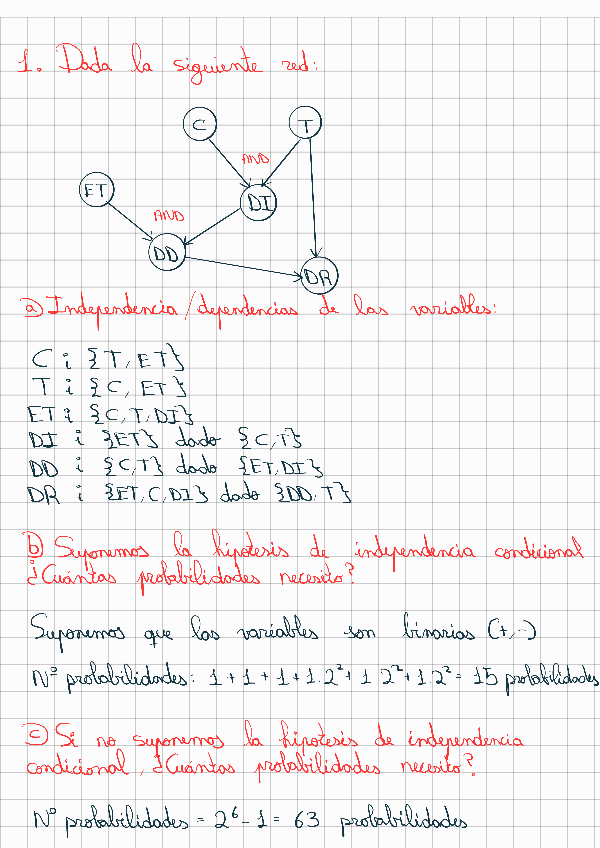 1. Dada la siguiente red:
C
T
AND
ET
DI
AND
DD
DR
a) Independencia/dependencias de las variables:
C i {T, ET}
T i {C, ET}
ET i {C,T,DI}
DI i {ET} dado {C,T}
DD i {C,T} dado {ET,DI}
DR i {ET,C,DI} dado {DD,T}
b) Suponemos la hipotesis de independencia condicional
¿Cuántas probabilidades necesito?
Suponemos que las variables son binarias (+,-)
Nº probabilidades: 1+1+1+1.2²+1.2²+1.2² = 15 probabilidades
c) Si no suponemos la hipotesis de independencia
condicional, ¿Cuántas probabilidades necesito?
Nº probabilidades = 2⁶-1 = 63 probabilidades